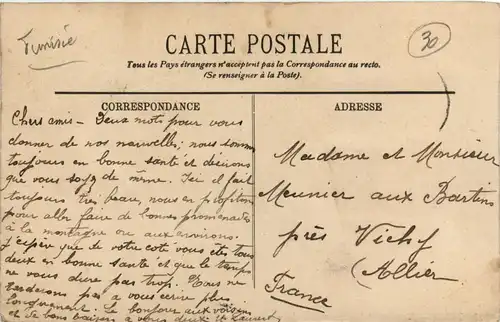 Tunisie
30
CARTE POSTALE
Tous les Pays étrangers n'acceptent pas la Correspondance au recto.
(Se renseigner à la Poste).
CORRESPONDANCE
Chers amis - Deux mots pour vous
donner de nos nouvelles, nous sommes
toujours en bonne santé et désirons
que vous soyez de même. Ici il fait
toujours très beau, nous en profitons
pour aller faire de bonnes promenades
à la montagne ou aux environs.
J'espère que de votre coté vous êtes tous
deux en bonne santé et que le temps
ne vous dure pas trop. Nous ne
tarderons pas a vous ecrire plus
longuement. Le bonjour aux voisins
et de bons baisers a vous deux
ADRESSE
Madame et Monsieur
Meunier aux Bartins
près Vichy
(Allier)
France